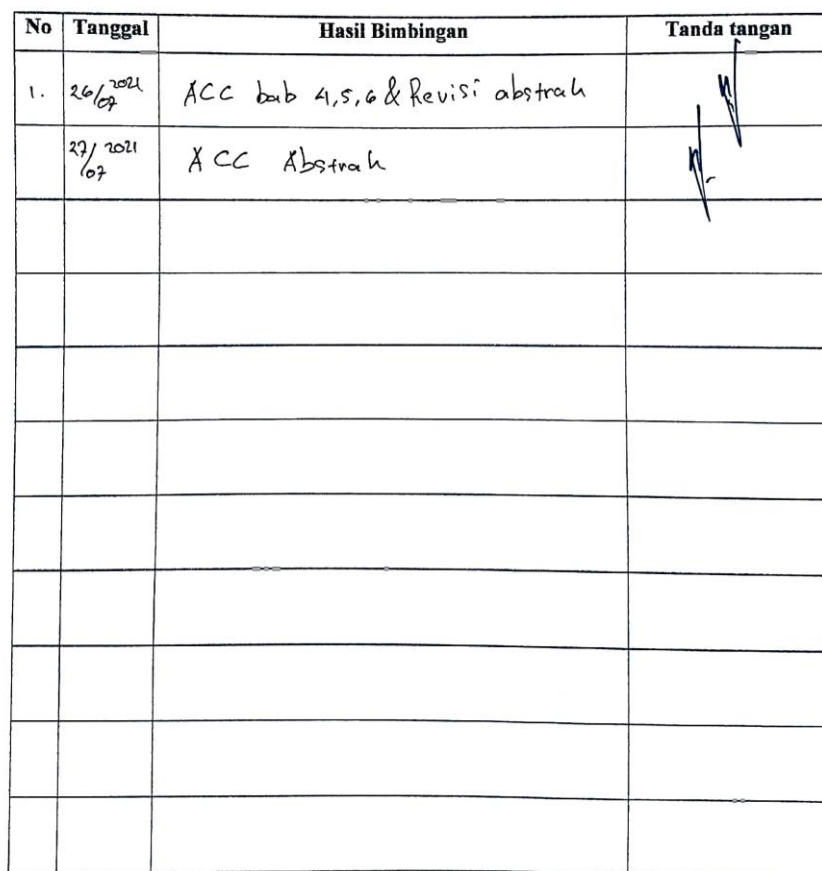 No Tanggal Hasil Bimbingan Tanda tangan
1. 26/07 2021 ACC bab 4,5,6 & Revisi abstrak
27/07 2021 ACC Abstrak